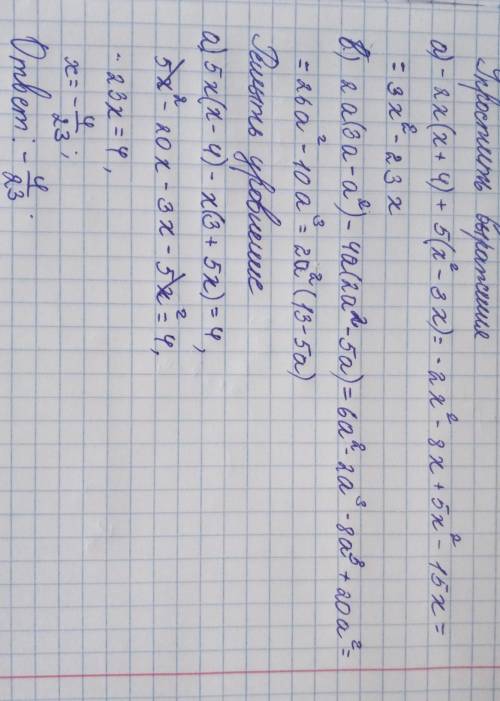 Упростить выражения
а) - 2x(x+4) + 5(x² - 3x) = - 2x² - 8x + 5x² - 15x =
= 3x² - 23x
б) 2a(3a - a²) - 4a(2a² - 5a) = 6a² - 2a³ - 8a³ + 20a² =
= 26a² - 10a³ = 2a²(13 - 5a)
Решить уровнение
а) 5x(x - 4) - x(3 + 5x) = 4,
5x² - 20x - 3x - 5x² = 4,
- 23x = 4,
x = - 4/23;
Ответ: - 4/23.